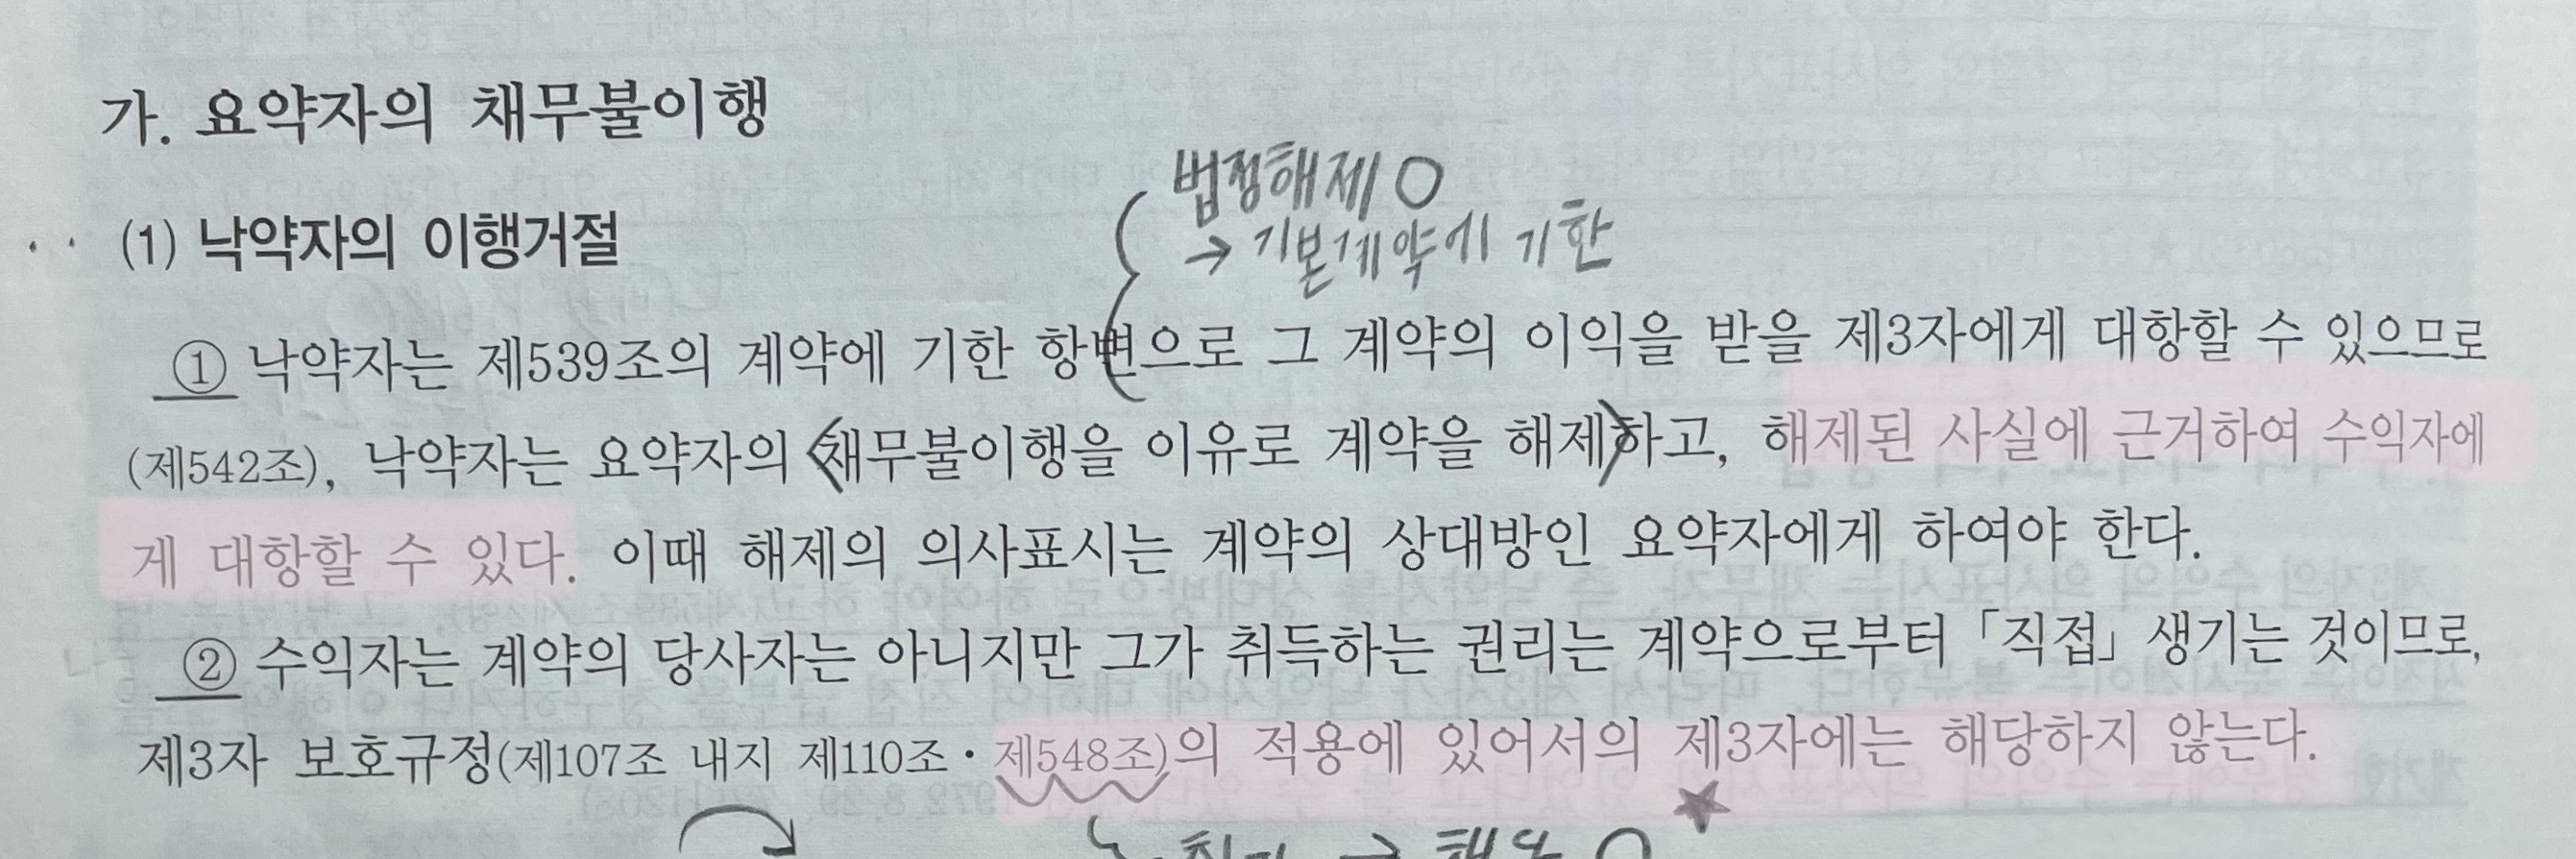 가. 요약자의 채무불이행
법정해제 O
(1) 낙약자의 이행거절
→ 기본계약에 기한
① 낙약자는 제539조의 계약에 기한 항변으로 그 계약의 이익을 받을 제3자에게 대항할 수 있으므로
(제542조), 낙약자는 요약자의 채무불이행을 이유로 계약을 해제하고, 해제된 사실에 근거하여 수익자에
게 대항할 수 있다. 이때 해제의 의사표시는 계약의 상대방인 요약자에게 하여야 한다.
② 수익자는 계약의 당사자는 아니지만 그가 취득하는 권리는 계약으로부터 「직접」 생기는 것이므로,
제3자 보호규정(제107조 내지 제110조·제548조)의 적용에 있어서의 제3자에는 해당하지 않는다.